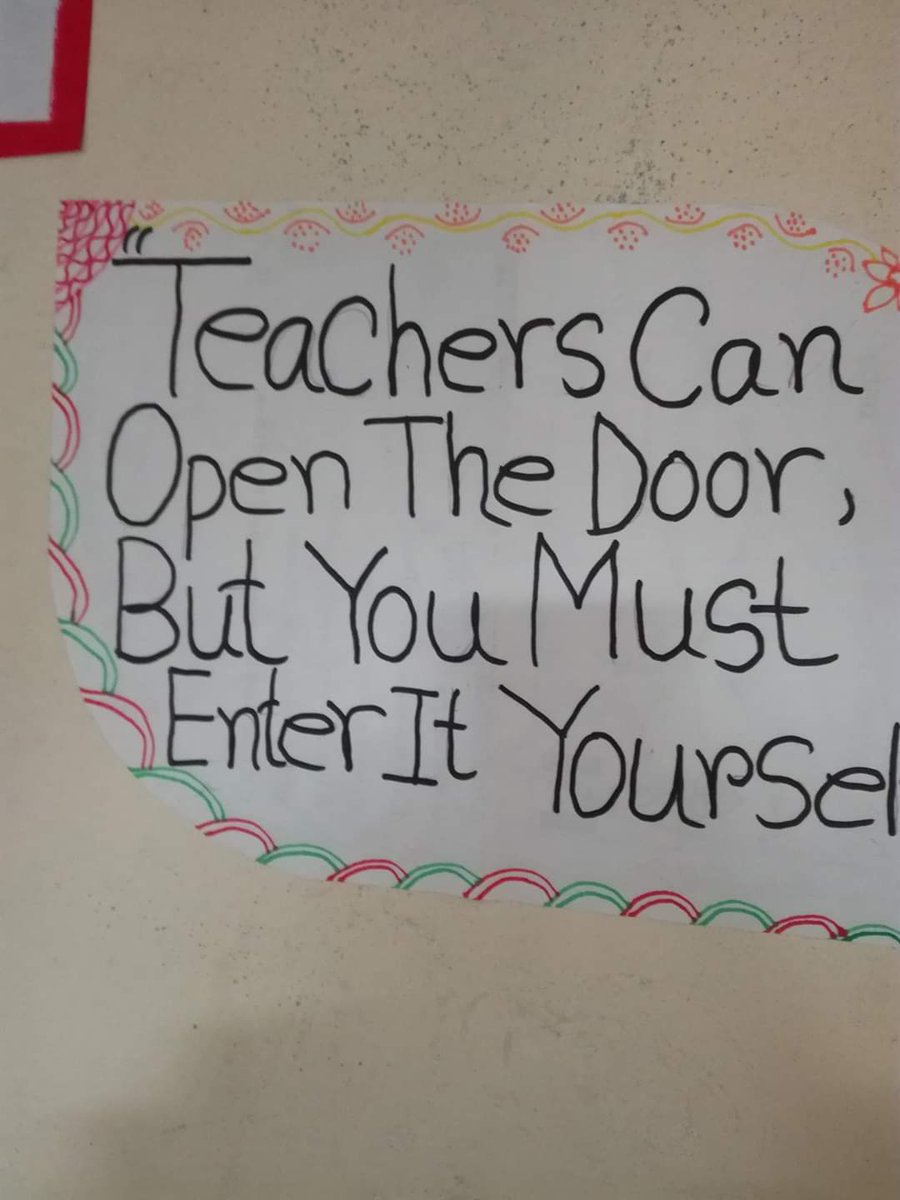 "Teachers Can
Open The Door,
But You Must
Enter It Yoursel